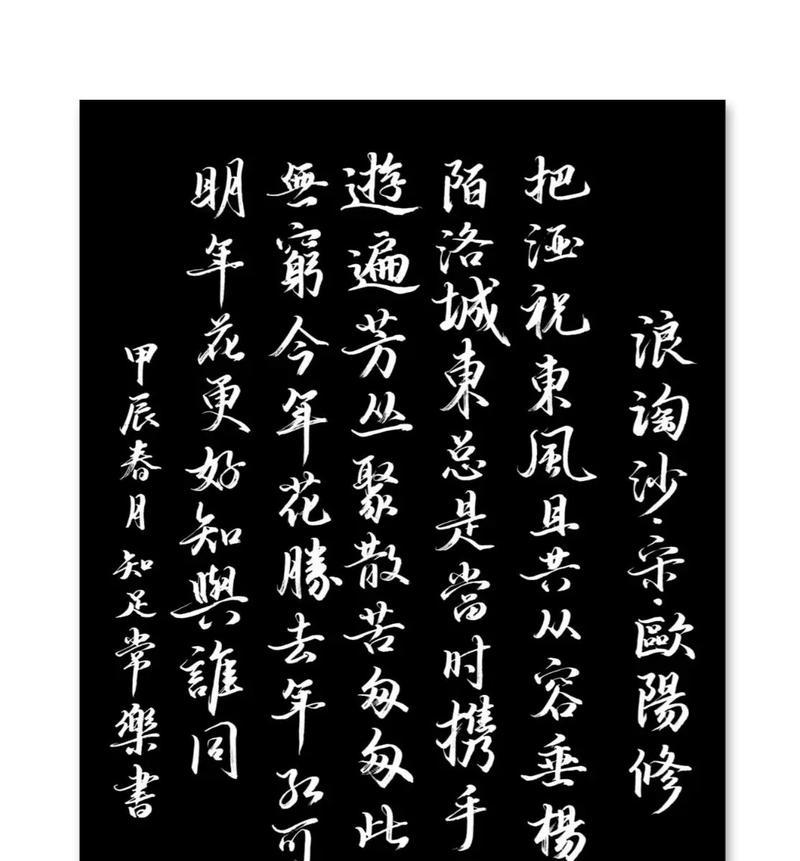 浪淘沙·宋·歐陽修
把酒祝東風且共从容垂楊
陌洛城東总是當时携手
遊遍芳丛聚散苦匆匆此
無窮今年花勝去年红可
明年花更好知與誰同
甲辰春月知足常樂書